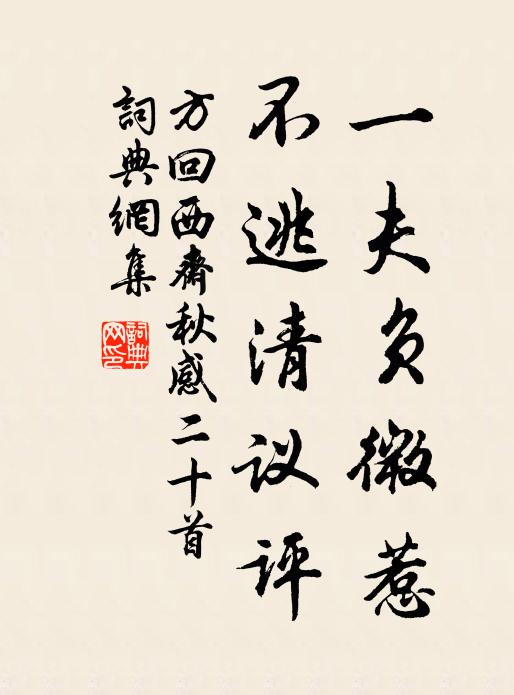 一夫负微惹
不逃清议评
方回西齋秋感二十首
詞典網集
詞典网印